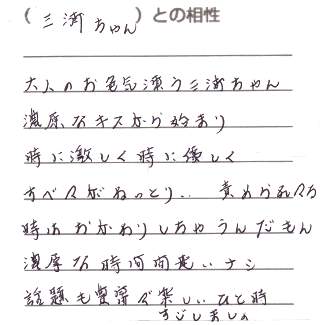 (三浦ちゃん)との相性
大人のお色気漂う三浦ちゃん
濃厚なキスから始まり
時に激しく時に優しく
すべてがねっとり.. 責められ方
時はおかわりしちゃうんだもん
濃厚な時間間違いナシ
話題も豊富で楽しいひと時
すごしましょ